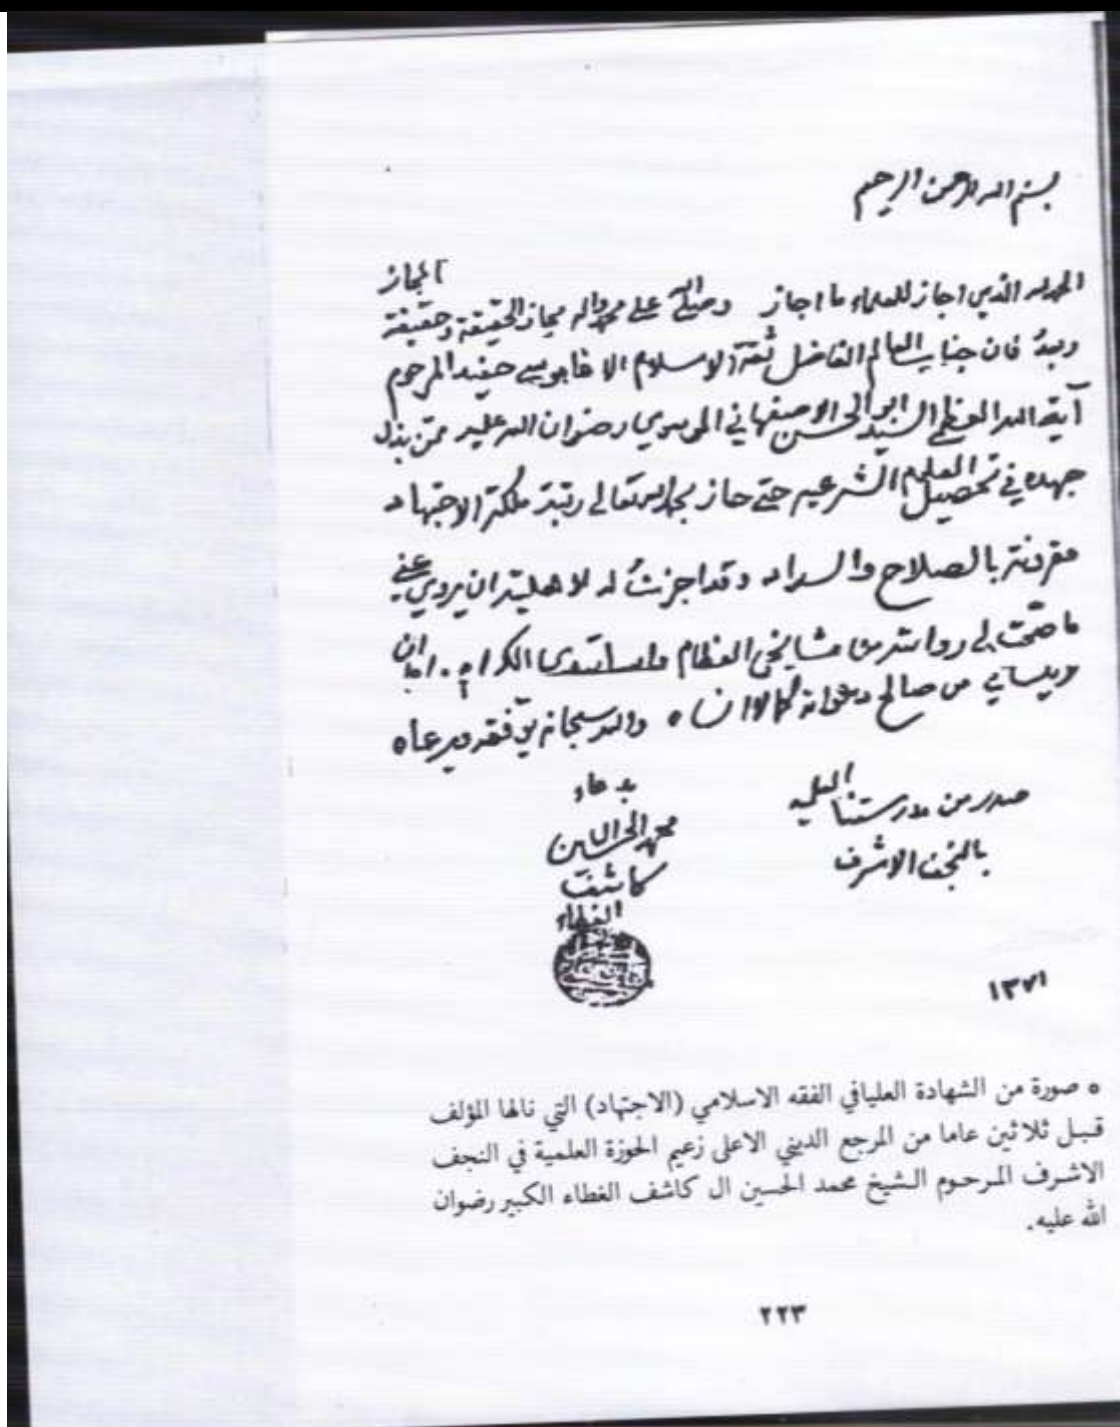 بسم الله الرحمن الرحيم
الحمد لله الذي اجاز للعلماء ما اجاز وصلى الله على محمد واله مجاز الحقيقة وحقيقة المجاز
وبعد فان جناب العالم الفاضل ثقة الاسلام الاغا موسى حفيد المرحوم
آية الله العظمى السيد ابو الحسن الاصفهاني الموسوي رضوان الله عليه ممن بذل
جهده في تحصيل العلوم الشرعيه حتى حاز بحمد الله تعالى رتبة ملكة الاجتهاد
مقرونة بالصلاح والسداد وقد اجزت له لاهليته ان يروي عني
ما صحت لي روايته من مشايخي العظام واساتذتي الكرام
من صالح دعواته كما لا انساه والله سبحانه يوفقه ويرعاه
صدر من مدرستنا العلميه
بالنجف الاشرف
بدعاء
محمد الحسين
كاشف
الغطاء
١٣٧١
ه صورة من الشهادة العليافي الفقه الاسلامي (الاجتهاد) التي نالها المؤلف
قبل ثلاثين عاما من المرجع الديني الاعلى زعيم الحوزة العلمية في النجف
الاشرف المرحوم الشيخ محمد الحسين ال كاشف الغطاء الكبير رضوان
الله عليه.
٢٢٣